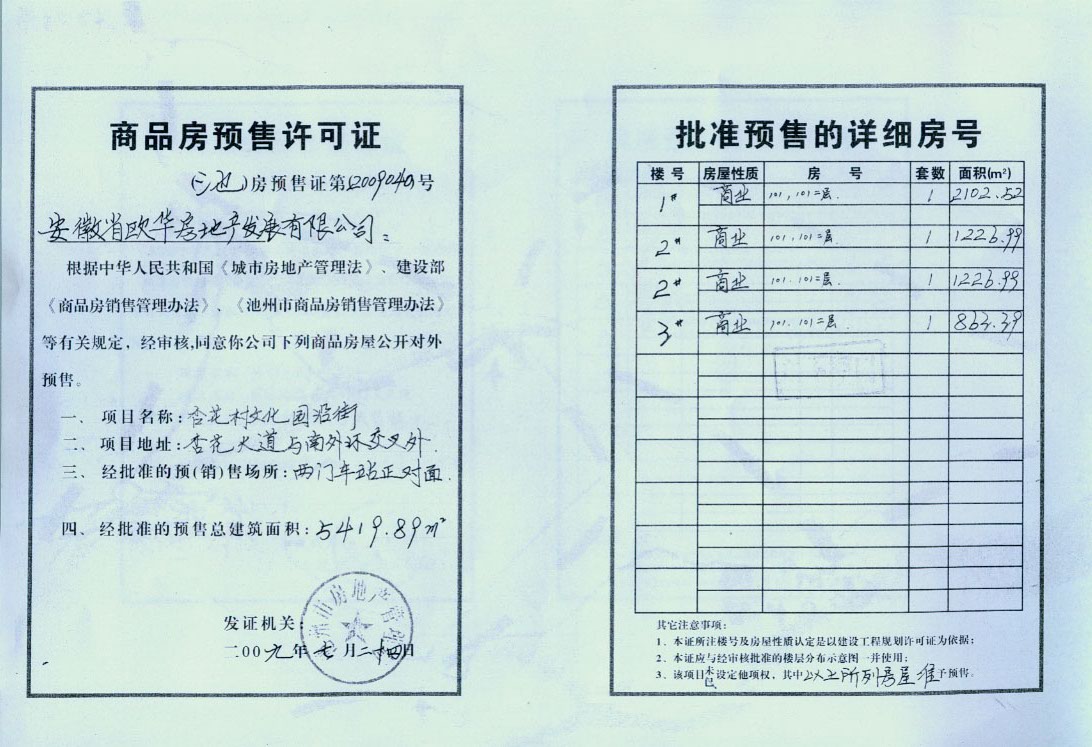 商品房预售许可证
(池)房预售证第2009040号
安徽省欧华房地产发展有限公司:
根据中华人民共和国《城市房地产管理法》、建设部
《商品房销售管理办法》、《池州市商品房销售管理办法》
等有关规定，经审核,同意你公司下列商品房屋公开对外
预售。
一、项目名称:杏花村文化园沿街
二、项目地址:杏花大道与南外环交叉外.
三、经批准的预(销)售场所:西门车站正对面.
四、经批准的预售总建筑面积:5419.89m²
发证机关:
州市房地产管理
二00九年七月二十四日
批准预售的详细房号
楼号 房屋性质 房号 套数 面积(m²)
1# 商业 101,101二层. 1 2102.52
2# 商业 101,101二层. 1 1226.99
2# 商业 101.101二层. 1 1226.99
3# 商业 101.101二层. 1 863.39
其它注意事项:
1、本证所注楼号及房屋性质认定是以建设工程规划许可证为依据;
2、本证应与经审核批准的楼层分布示意图一并使用;
3、该项目未已设定他项权，其中以上所列房屋准予预售。